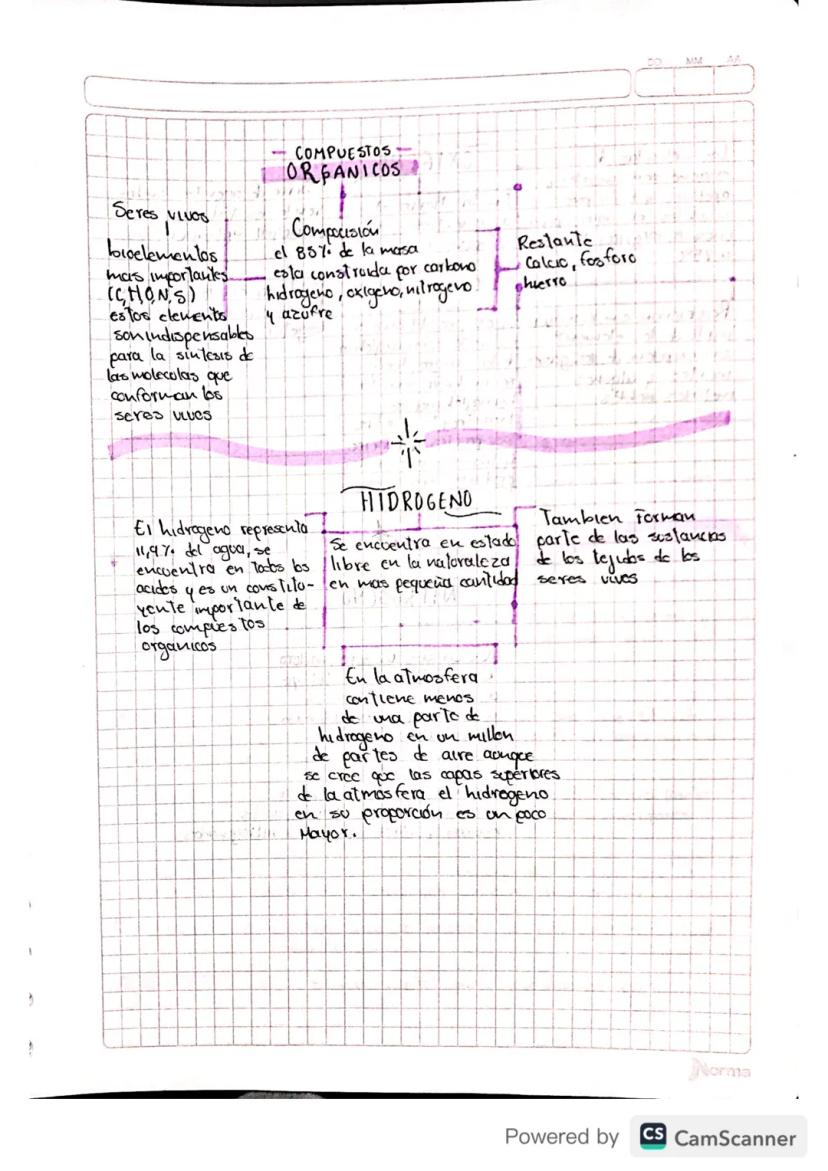 DD MM AA
- COMPUESTOS -
ORGANICOS
Seres vivos
bioelementos
mas importantes
(C,H,O,N,S)
estos elements
son indispensables
para la sintesis de
las moleculas que
conforman los
seres vivos
Composición
el 85% de la masa
esta construida por carbono
hidrogeno, oxigeno, nitrogeno
y azufre
Restante
Calcio, fosforo
hierro
HIDROGENO
El hidrogeno representa
11,9% del agua, se
encuentra en todos los
acidos y es un constitu-
yente importante de
los compuestos
organicos
Se encuentra en estado
libre en la naturaleza
en mas pequeña cantidad
Tambien forman
parte de las sustancias
de los tejidos de los
seres vivos
En la atmosfera
contiene menos
de una parte de
hidrogeno en un millon
de partes de aire aunque
se cree que las capas superiores
de la atmosfera el hidrogeno
en su proporción es un poco
Mayor.
Norma
Powered by CS CamScanner